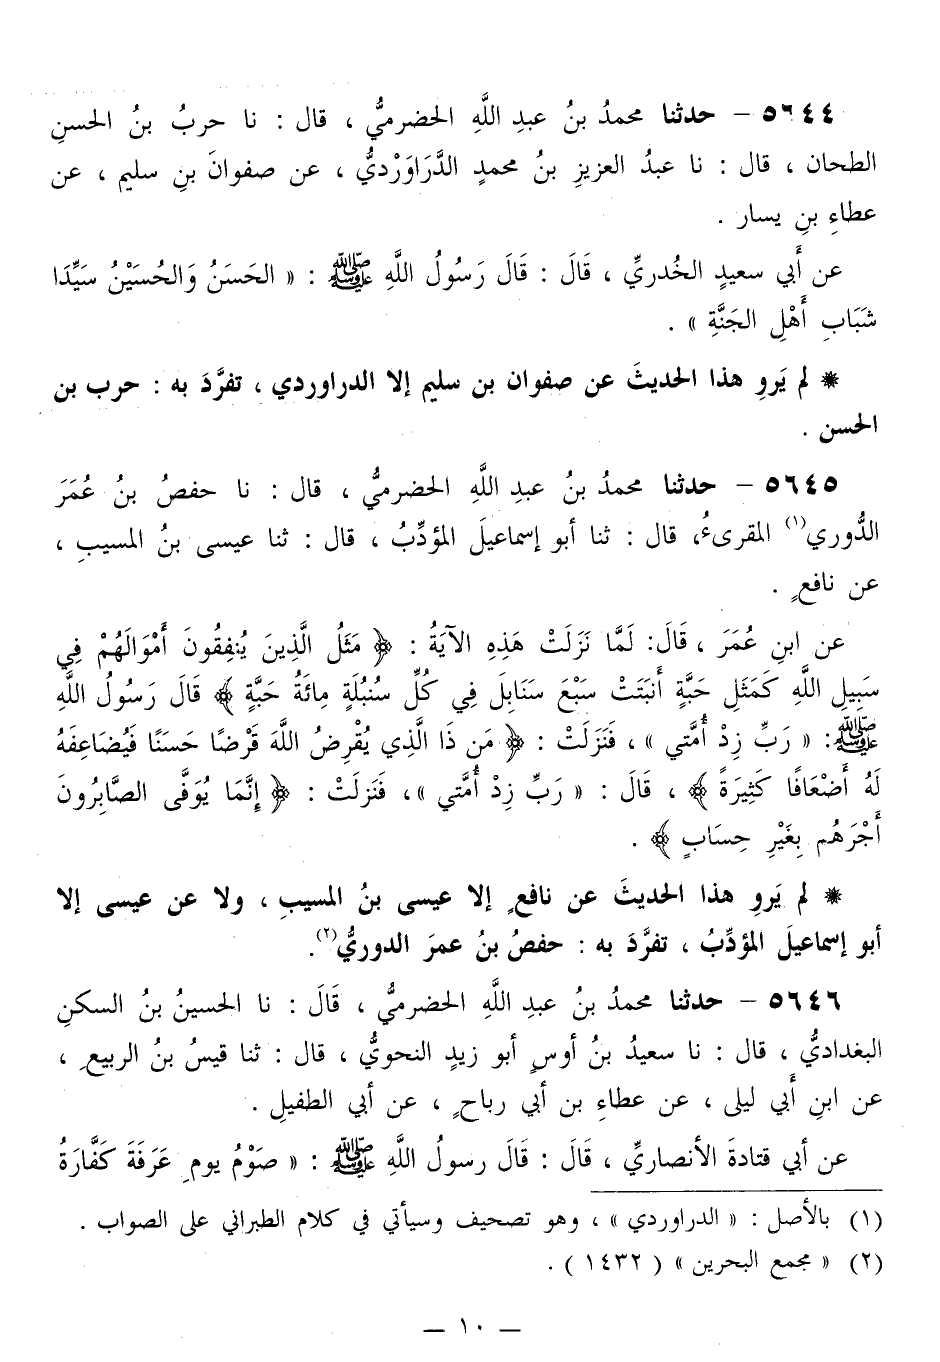 ٥٦٤٤ – حدثنا محمدُ بنُ عبدِ اللَّهِ الحضرميُّ ، قال : نا حربُ بنُ الحسنِ
الطحان ، قال : نا عبدُ العزيزِ بنُ محمدٍ الدَّرَاوَرْديُّ ، عن صفوانَ بنِ سليم ، عن
عطاءِ بنِ يسار .
عن أَبي سعيدٍ الخُدريِّ ، قَالَ : قَالَ رَسُولُ اللَّهِ ﷺ : « الحَسَنُ وَالحُسَيْنُ سَيِّدَا
شَبَابِ أَهْلِ الجَنَّةِ » .
* لم يَروِ هذا الحديثَ عن صفوان بن سليم إلا الدراوردي ، تفرَّدَ به : حرب بن
الحسن .
٥٦٤٥ – حدثنا محمدُ بنُ عبدِ اللَّهِ الحضرميُّ ، قال : نا حفصُ بنُ عُمَرَ
الدُّوري(١) المقرىءُ، قال : ثنا أبو إسماعيلَ المؤدِّبُ ، قال : ثنا عيسى بنُ المسيبِ ،
عن نافعٍ .
عن ابنِ عُمَرَ ، قَالَ: لَمَّا نَزَلَتْ هَذِهِ الآيَةُ : ﴿ مَثَلُ الَّذِينَ يُنفِقُونَ أَمْوَالَهُمْ فِي
سَبِيلِ اللَّهِ كَمَثَلِ حَبَّةٍ أَنبَتَتْ سَبْعَ سَنَابِلَ فِي كُلِّ سُنبُلَةٍ مِائَةُ حَبَّةٍ ﴾ قَالَ رَسُولُ اللَّهِ
ﷺ: « رَبِّ زِدْ أُمَّتي » ، فَنَزَلَتْ : ﴿ مَن ذَا الَّذِي يُقْرِضُ اللَّهَ قَرْضًا حَسَنًا فَيُضَاعِفَهُ
لَهُ أَضْعَافًا كَثِيرَةً ﴾ ، قَالَ : « رَبِّ زِدْ أُمَّتي »، فَنَزلَتْ : ﴿ إِنَّمَا يُوَفَّى الصَّابِرُونَ
أَجْرَهُم بِغَيْرِ حِسَابٍ ﴾ .
* لم يَروِ هذا الحديثَ عن نافعٍ إلا عيسى بنُ المسيبِ ، ولا عن عيسى إلا
أبو إسماعيلَ المؤدِّبُ ، تفرَّدَ به : حفصُ بنُ عمرَ الدوريُّ(٢).
٥٦٤٦ – حدثنا محمدُ بنُ عبدِ اللَّهِ الحضرميُّ ، قَالَ : نا الحسينُ بنُ السكنِ
البغداديُّ ، قال : نا سعيدُ بنُ أوسٍ أبو زيدٍ النحويُّ ، قال : ثنا قيسُ بنُ الربيعِ ،
عن ابنِ أَبي ليلى ، عن عطاءِ بن أبي رباحٍ ، عن أبي الطفيلِ .
عن أبي قتادةَ الأنصاريِّ ، قَالَ : قَالَ رسولُ اللَّهِ ﷺ : « صَوْمُ يومِ عَرَفَةَ كَفَّارَةُ
(١) بالأصل : « الدراوردي » ، وهو تصحيف وسيأتي في كلام الطبراني على الصواب .
(٢) « مجمع البحرين » ( ١٤٣٢ ) .
– ١٠ –